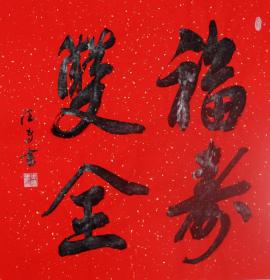 福寿
雙全